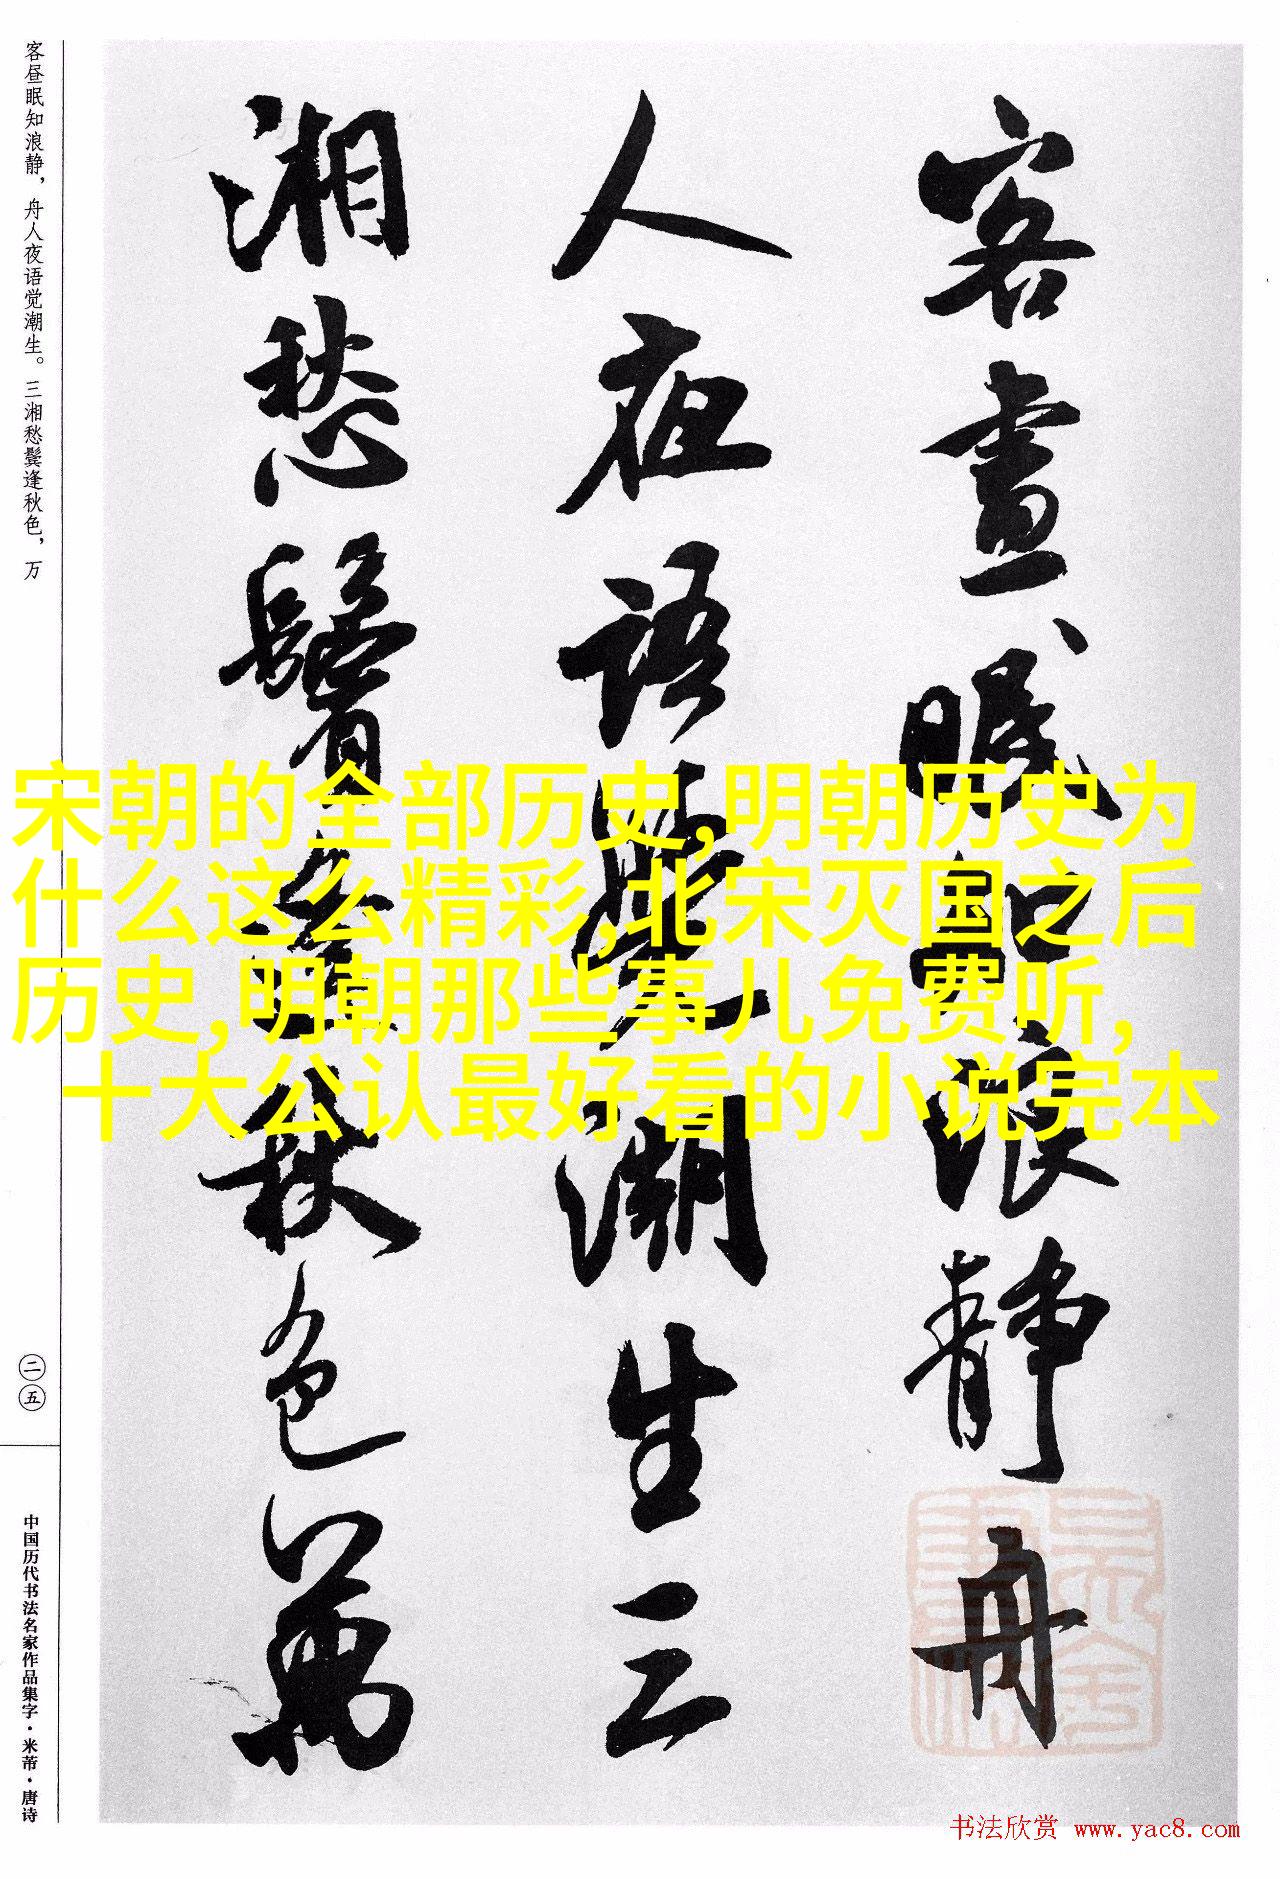 客昼眠知浪静，舟人夜语觉潮生。三湘愁鬓逢秋色，万
客晝眠知浪靜舟
人夜語覺潮生三
湘愁鬢逢秋色萬
宋朝的全部历史,明朝历史为
什么这么精彩,北宋灭国之后
历史,明朝那些事儿免费听,
十大公认最好看的小说完本
二五
中国历代书法名家作品集字·米芾·唐诗
书法欣赏 www.yac8.com